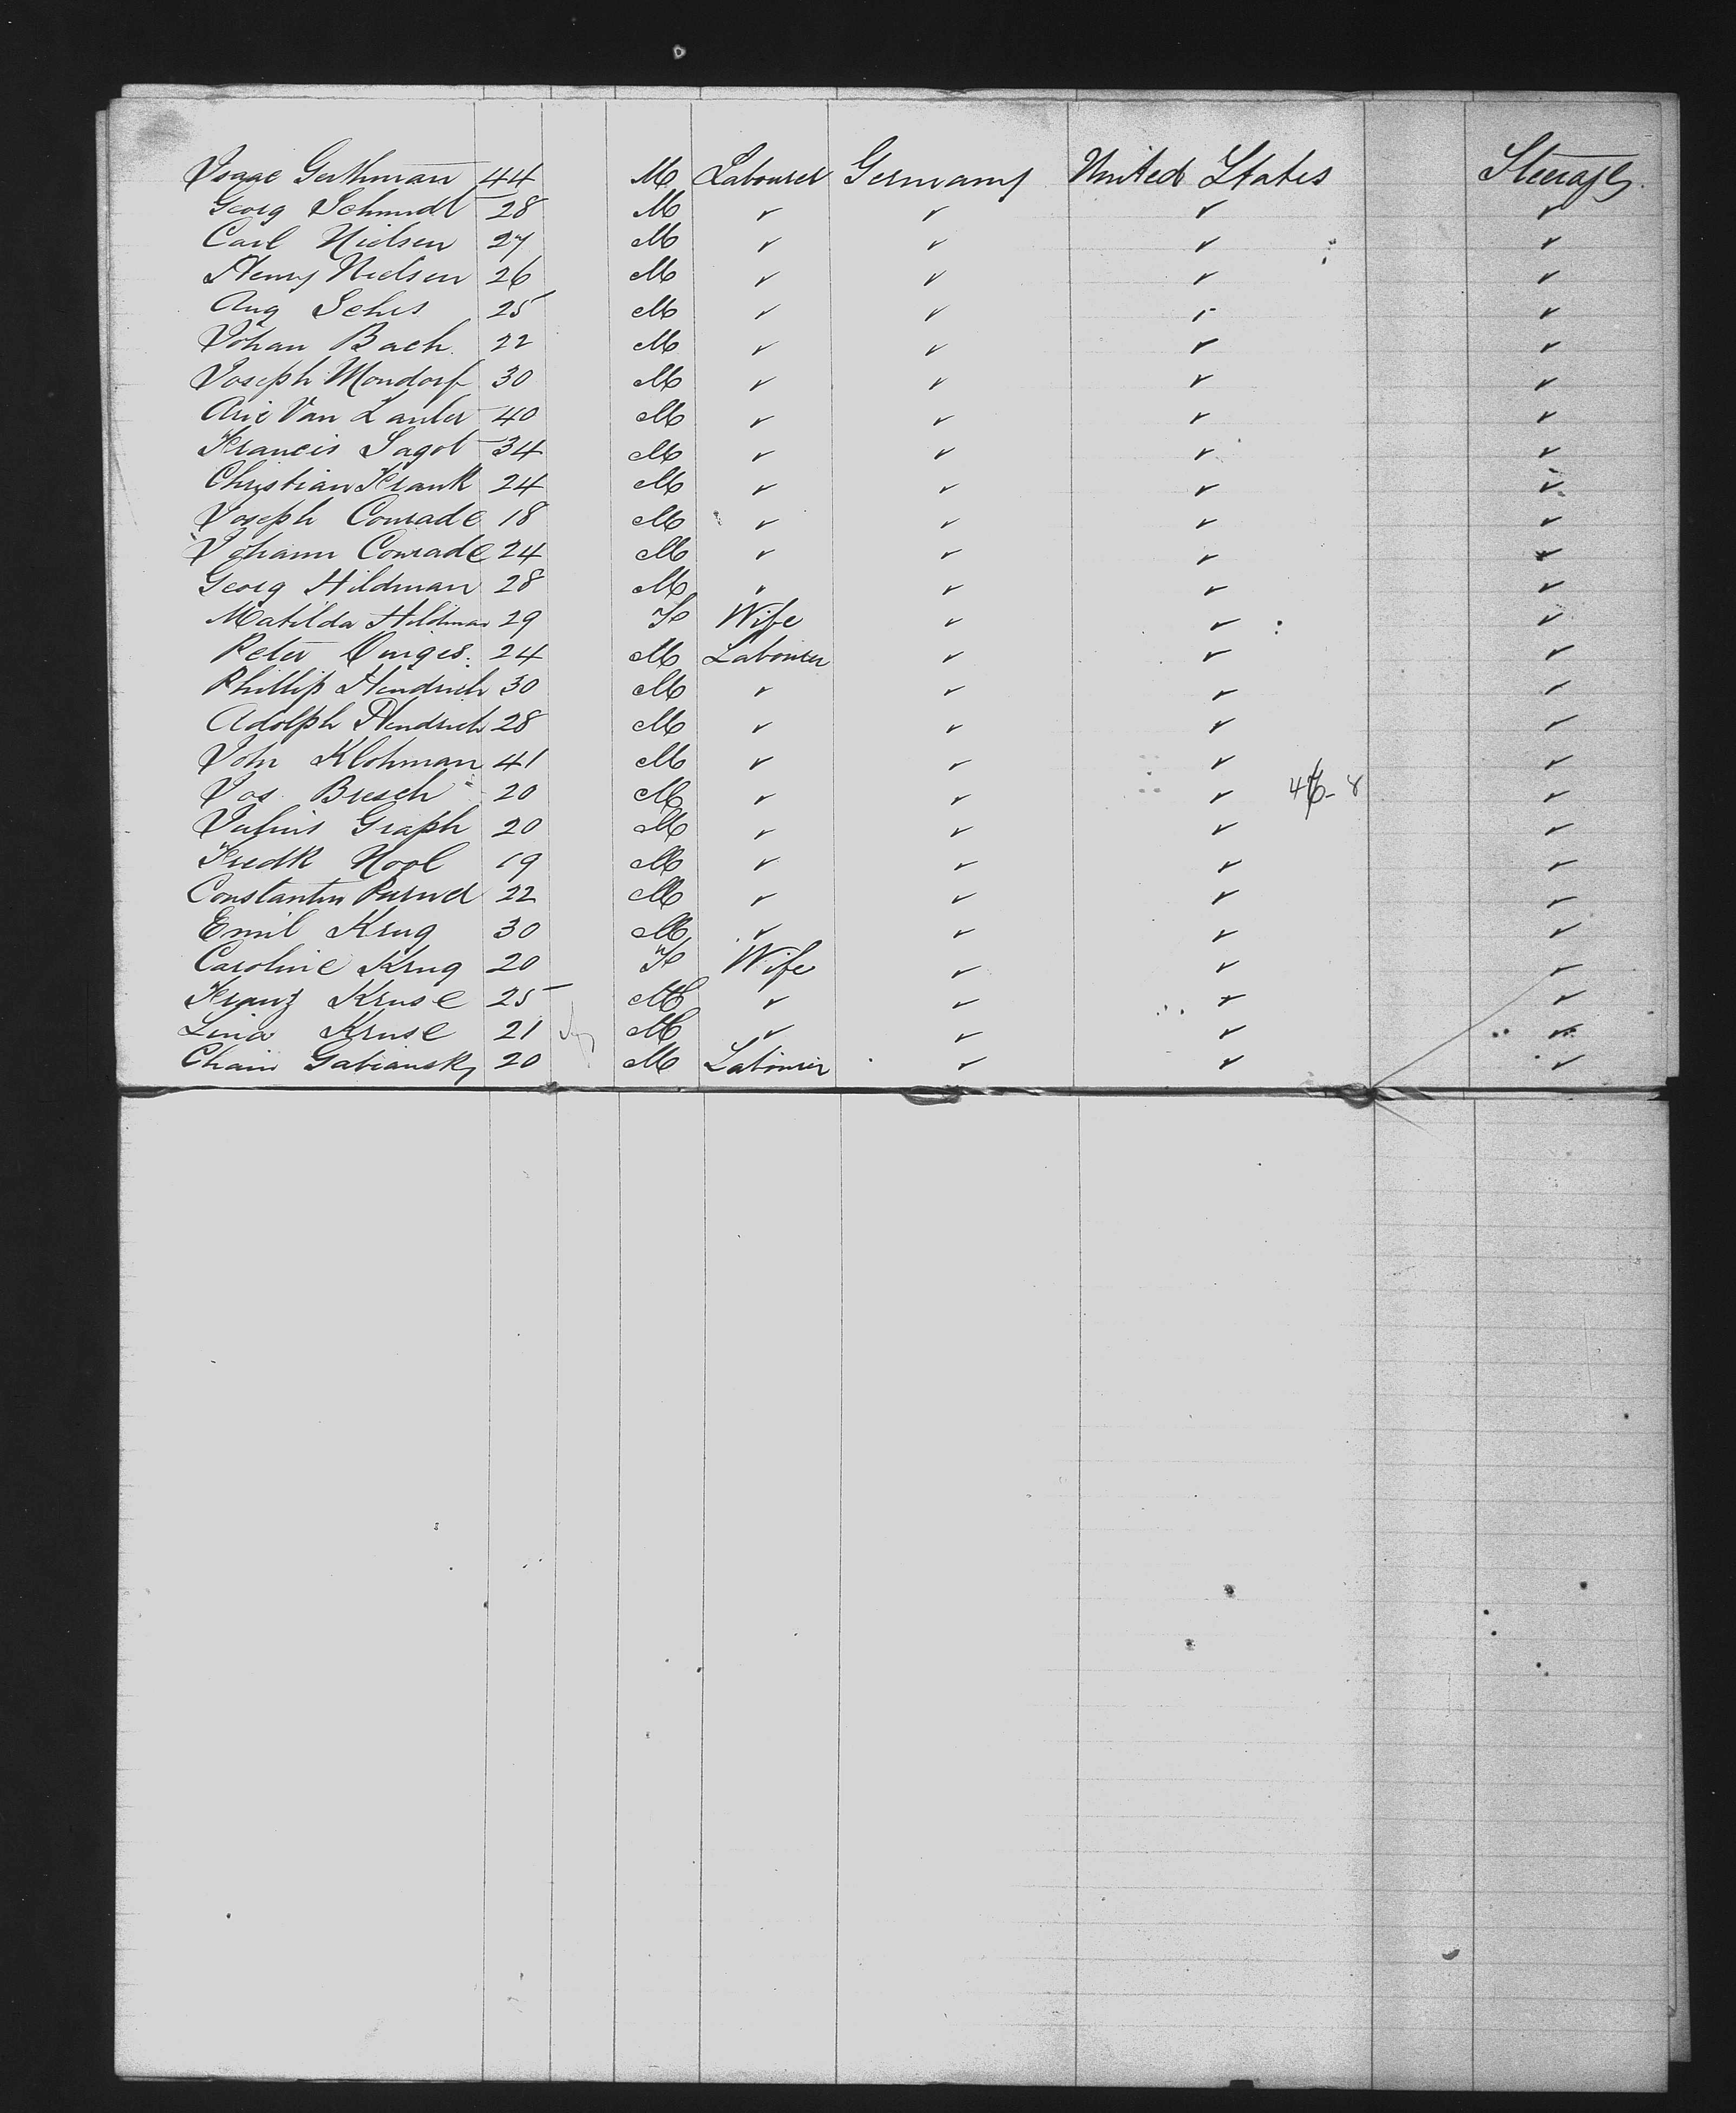 Isaac Gerthman 44 M Labourer Germany United States Steerage.
Georg Schmidt 28 M ✓ ✓ ✓ ✓
Carl Nielsen 27 M ✓ ✓ ✓ ✓
Henry Nielsen 26 M ✓ ✓ ✓ ✓
Aug 25 M ✓ ✓ ✓ ✓
Johan Bach 22 M ✓ ✓ ✓ ✓
Joseph Mondorf 30 M ✓ ✓ ✓ ✓
Arie Van 40 M ✓ ✓ ✓ ✓
Francis Sagot 34 M ✓ ✓ ✓ ✓
Christian Frank 24 M ✓ ✓ ✓ ✓
Joseph Conrade 18 M ✓ ✓ ✓ ✓
Johann Conrade 24 M ✓ ✓ ✓ ✓
Georg Hildman 28 M ✓ ✓ ✓ ✓
Matilda Hildman 29 F Wife ✓ ✓ ✓
Peter 24 M Labourer ✓ ✓ ✓
Phillip Hendrich 30 M ✓ ✓ ✓ ✓
Adolph Hendrich 28 M ✓ ✓ ✓ ✓
John Klohman 41 M ✓ ✓ ✓ ✓
Jos Busch 20 M ✓ ✓ ✓ ✓
Julius Graph 20 M ✓ ✓ ✓ ✓
Fredk Nool 19 M ✓ ✓ ✓ ✓
Constantin 22 M ✓ ✓ ✓ ✓
Emil Krug 30 M ✓ ✓ ✓ ✓
Caroline Krug 20 F Wife ✓ ✓ ✓
Franz Kruse 25 M ✓ ✓ ✓ ✓
Lina Kruse 21 M ✓ ✓ ✓ ✓
Chaim Gabiansky 20 M Labourer ✓ ✓ ✓